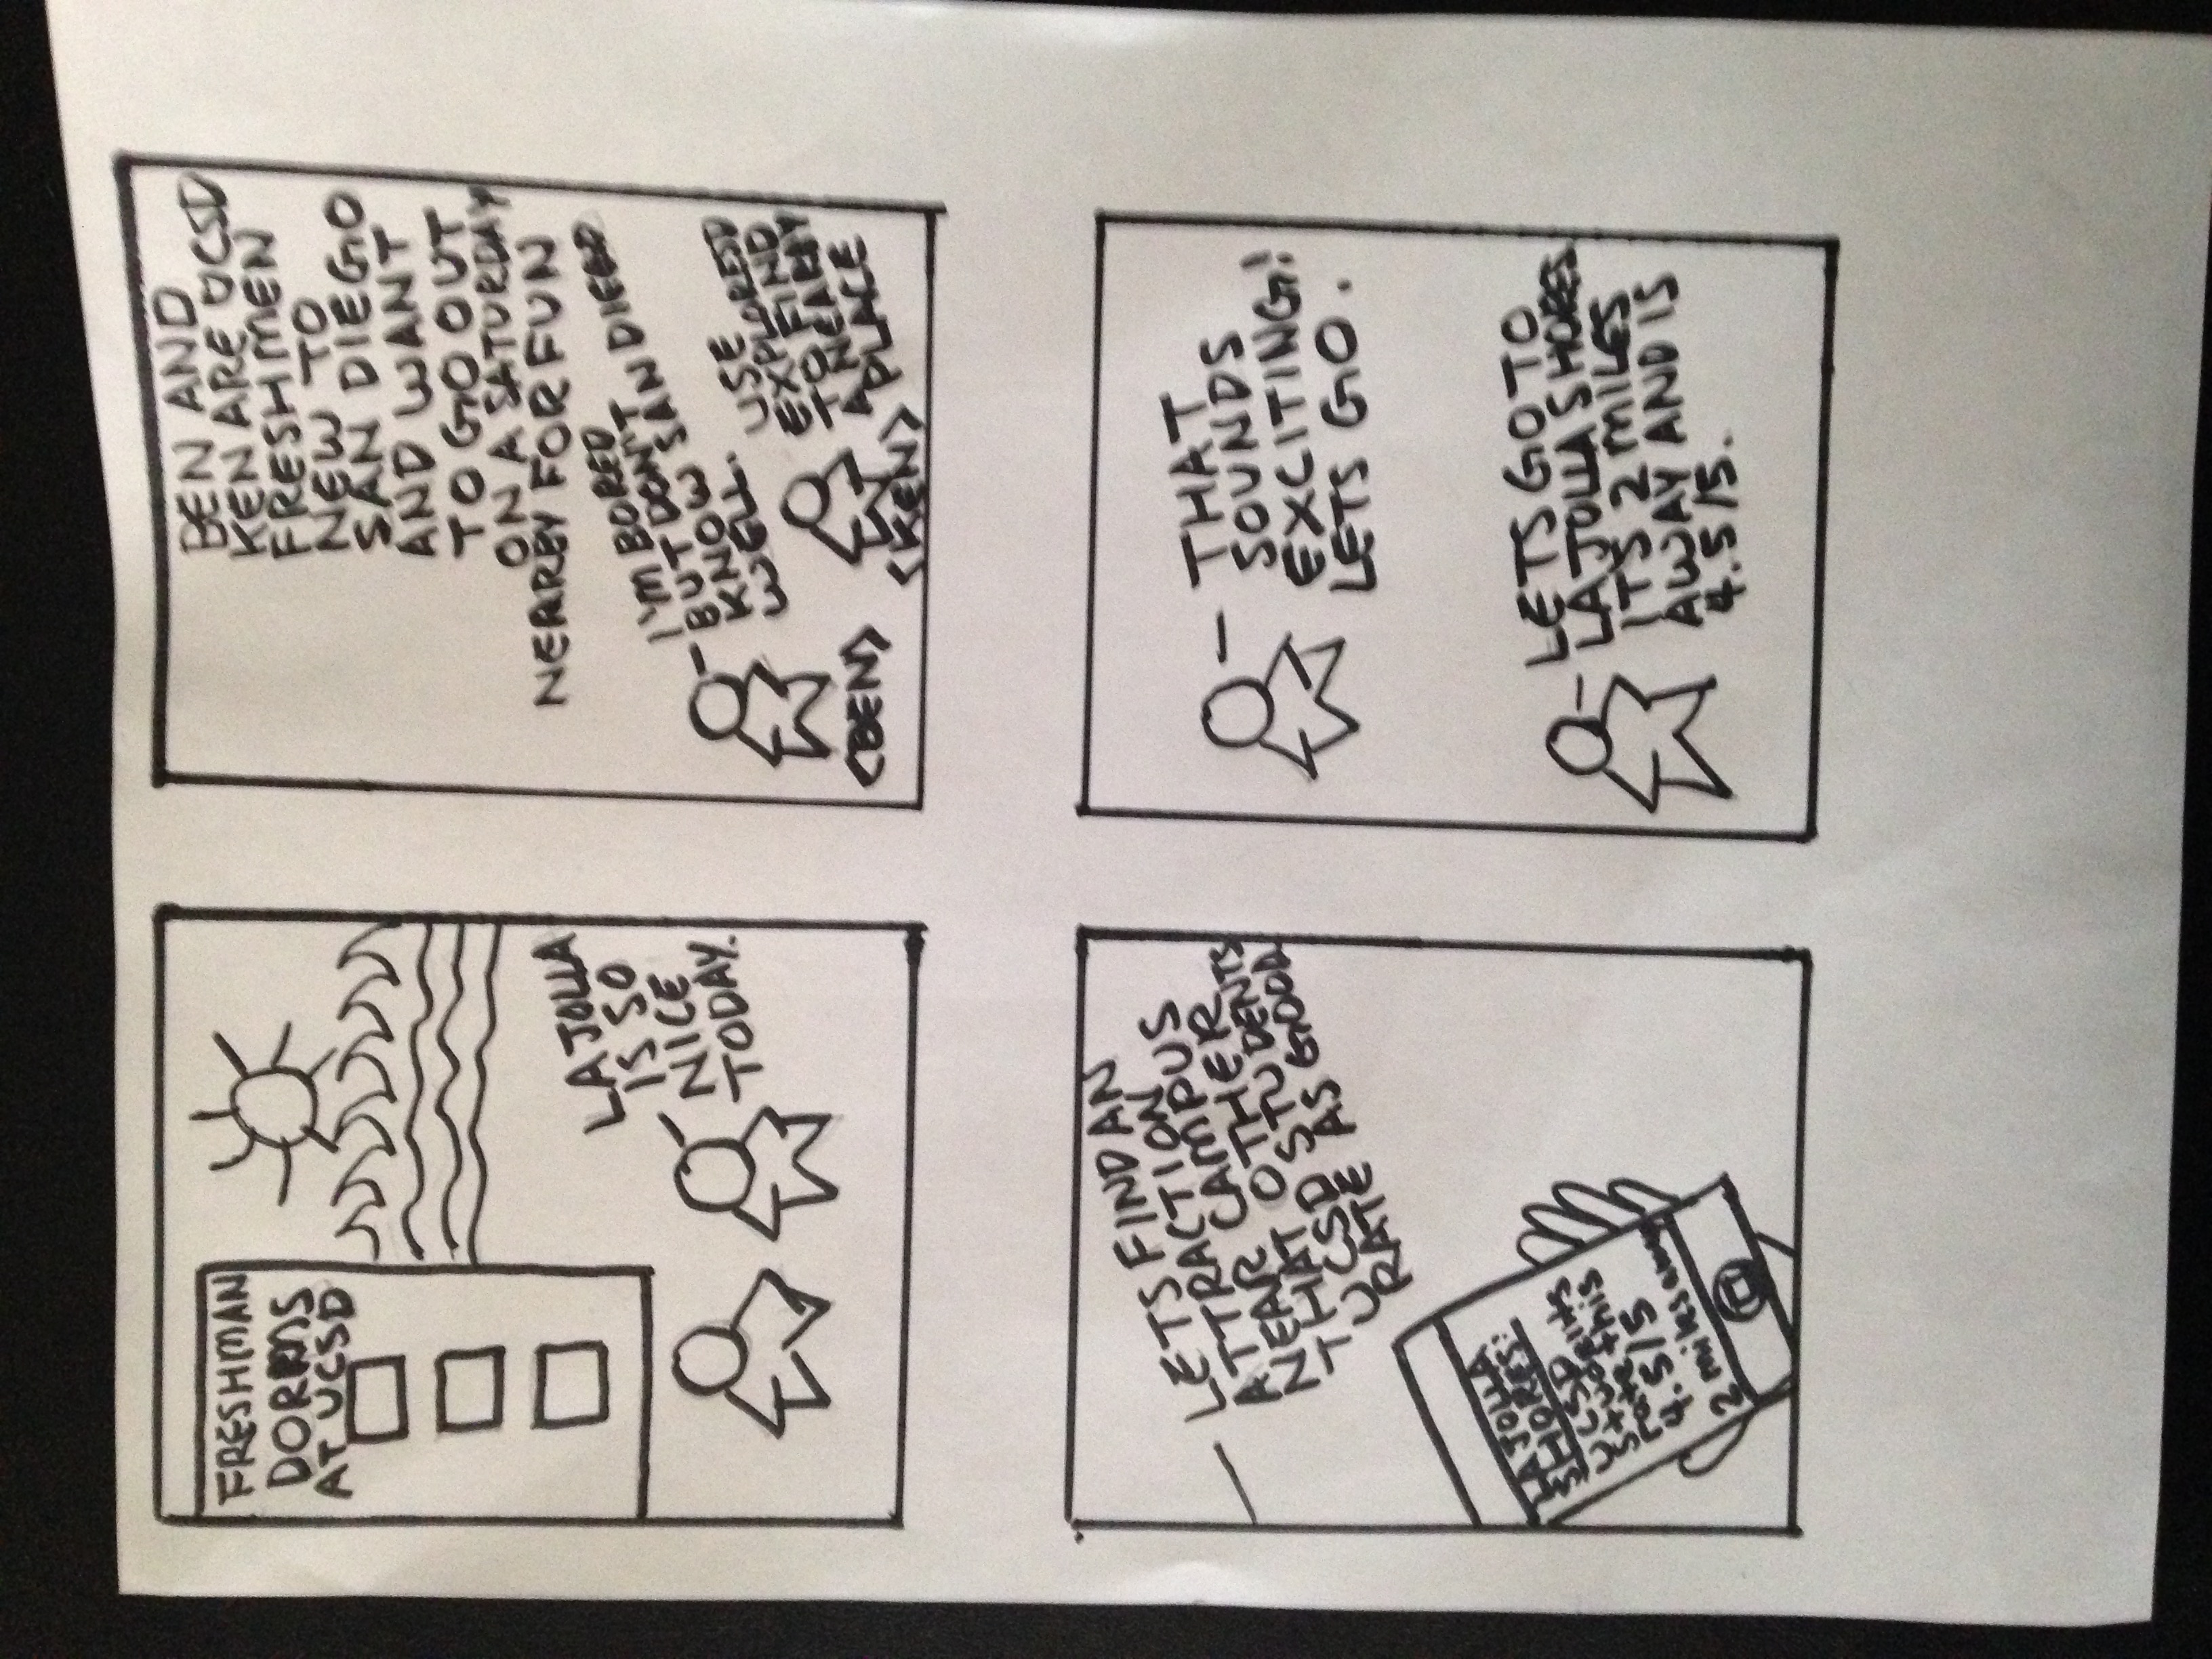 FRESHMAN
DORMS
AT UCSD
LA JOLLA
IS SO
NICE
TODAY.
BEN AND
KEN ARE UCSD
FRESHMEN
NEW TO
SAN DIEGO
AND WANT
TO GO OUT
ON A SATURDAY
NEARBY FOR FUN
I'M BORED
BUT DON'T
KNOW SAN DIEGO
WELL.
<BEN>
USE
EXPLORESD
TO FIND
A NEARBY
PLACE
<KEN>
LETS FIND AN
ATTRACTION
NEAR CAMPUS
THAT OTHER
UCSD STUDENTS
RATE AS GOOD.
LA JOLLA
SHORES:
UCSD
students
rate this
4.5/5
2 miles away
THAT
SOUNDS
EXCITING!
LETS GO.
LETS GO TO
LA JOLLA SHORES
ITS 2 MILES
AWAY AND IS
4.5/5.